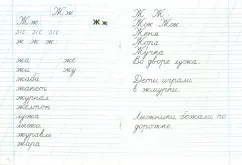 Ж ж
Ж ж
ж ж ж
ж ж ж
жа же
жи жу
жаба
жалеть
журнал
желток
лужа
лыжи
журавль
жара
Ж. Ж.
Жж Жж
Женя
Жора
Жучка
Во дворе лужа.
Дети играли
в жмурки.
Лыжники бежали по
дорожке.